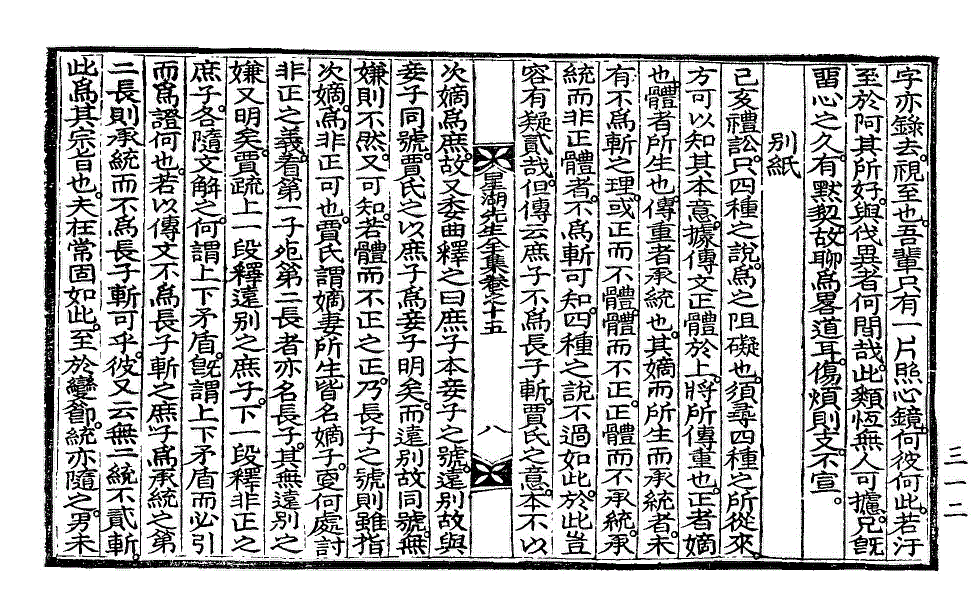 字亦錄去。視至也。吾輩只有一片照心鏡。何彼何此。若汙
至於阿其所好。與伐異者何間哉。此類恆無人可攄。兄旣
畱心之久。有默契。故聊爲畧道耳。傷煩則支。不宣。
別紙
己亥禮訟。只四種之說。爲之阻礙也。須尋四種之所從來。
方可以知其本意。據傳文正體於上。將所傳重也。正者嫡
也。體者所生也。傳重者承統也。其嫡而所生而承統者。未
有不爲斬之理。或正而不體。體而不正。正體而不承統。承
統而非正體者。不爲斬可知。四種之說不過如此。於此豈
容有疑貳哉。但傳云庶子不爲長子斬。賈氏之意。本不以
星湖先生全集卷之十五
八
次嫡爲庶。故又委曲釋之曰庶子本妾子之號。遠別故與
妾子同號。賈氏之以庶子爲妾子明矣。而遠別故同號。無
嫌則不然。又可知。若體而不正之正。乃長子之號。則雖指
次嫡。爲非正可也。賈氏謂嫡妻所生皆名嫡子。更何處討
非正之義。着第一子死。第二長者亦名長子。其無遠別之
嫌又明矣。賈疏上一段釋遠別之庶子。下一段釋非正之
庶子。各隨文解之。何謂上下矛盾。旣謂上下矛盾而必引
而爲證何也。若以傳文不爲長子斬之庶子爲承統之第
二長則承統而不爲長子斬可乎。彼又云無二統不貳斬
此爲其宗旨也。夫在常固如此。至於變節。統亦隨之。男未
三一二